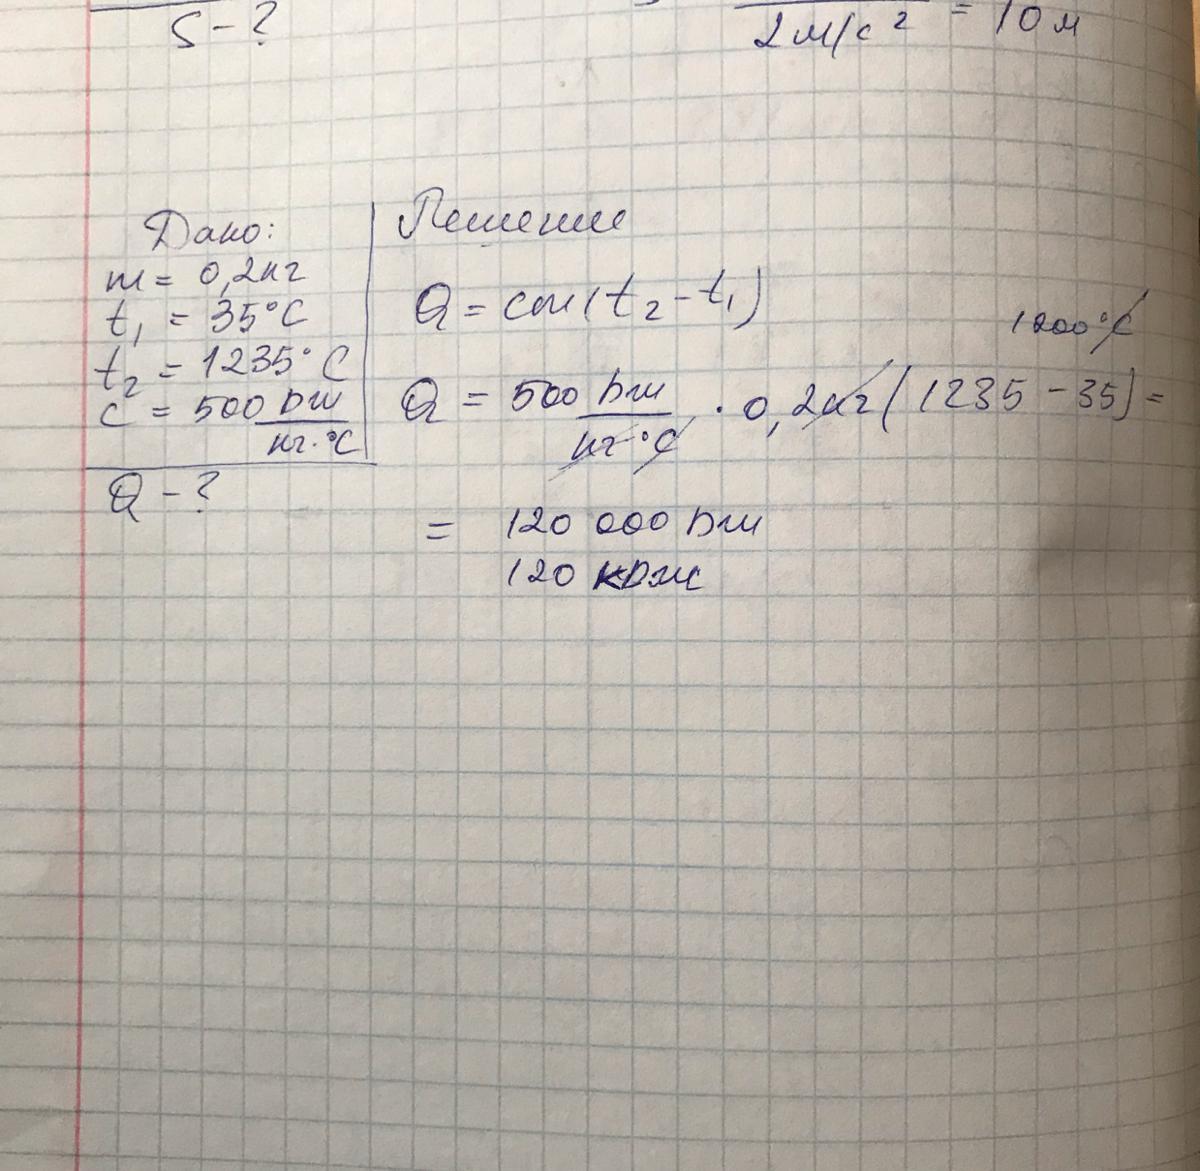 S - ?
2 м/с² = 10 м
Дано:
m = 0,2 кг
t₁ = 35°C
t₂ = 1235°C
c = 500 Дж
кг·°C
Q - ?
Решение
Q = cm(t₂ - t₁)
1200°C
Q = 500 Дж/кг·°C · 0,2кг(1235 - 35) =
= 120 000 Дж
120 кДж